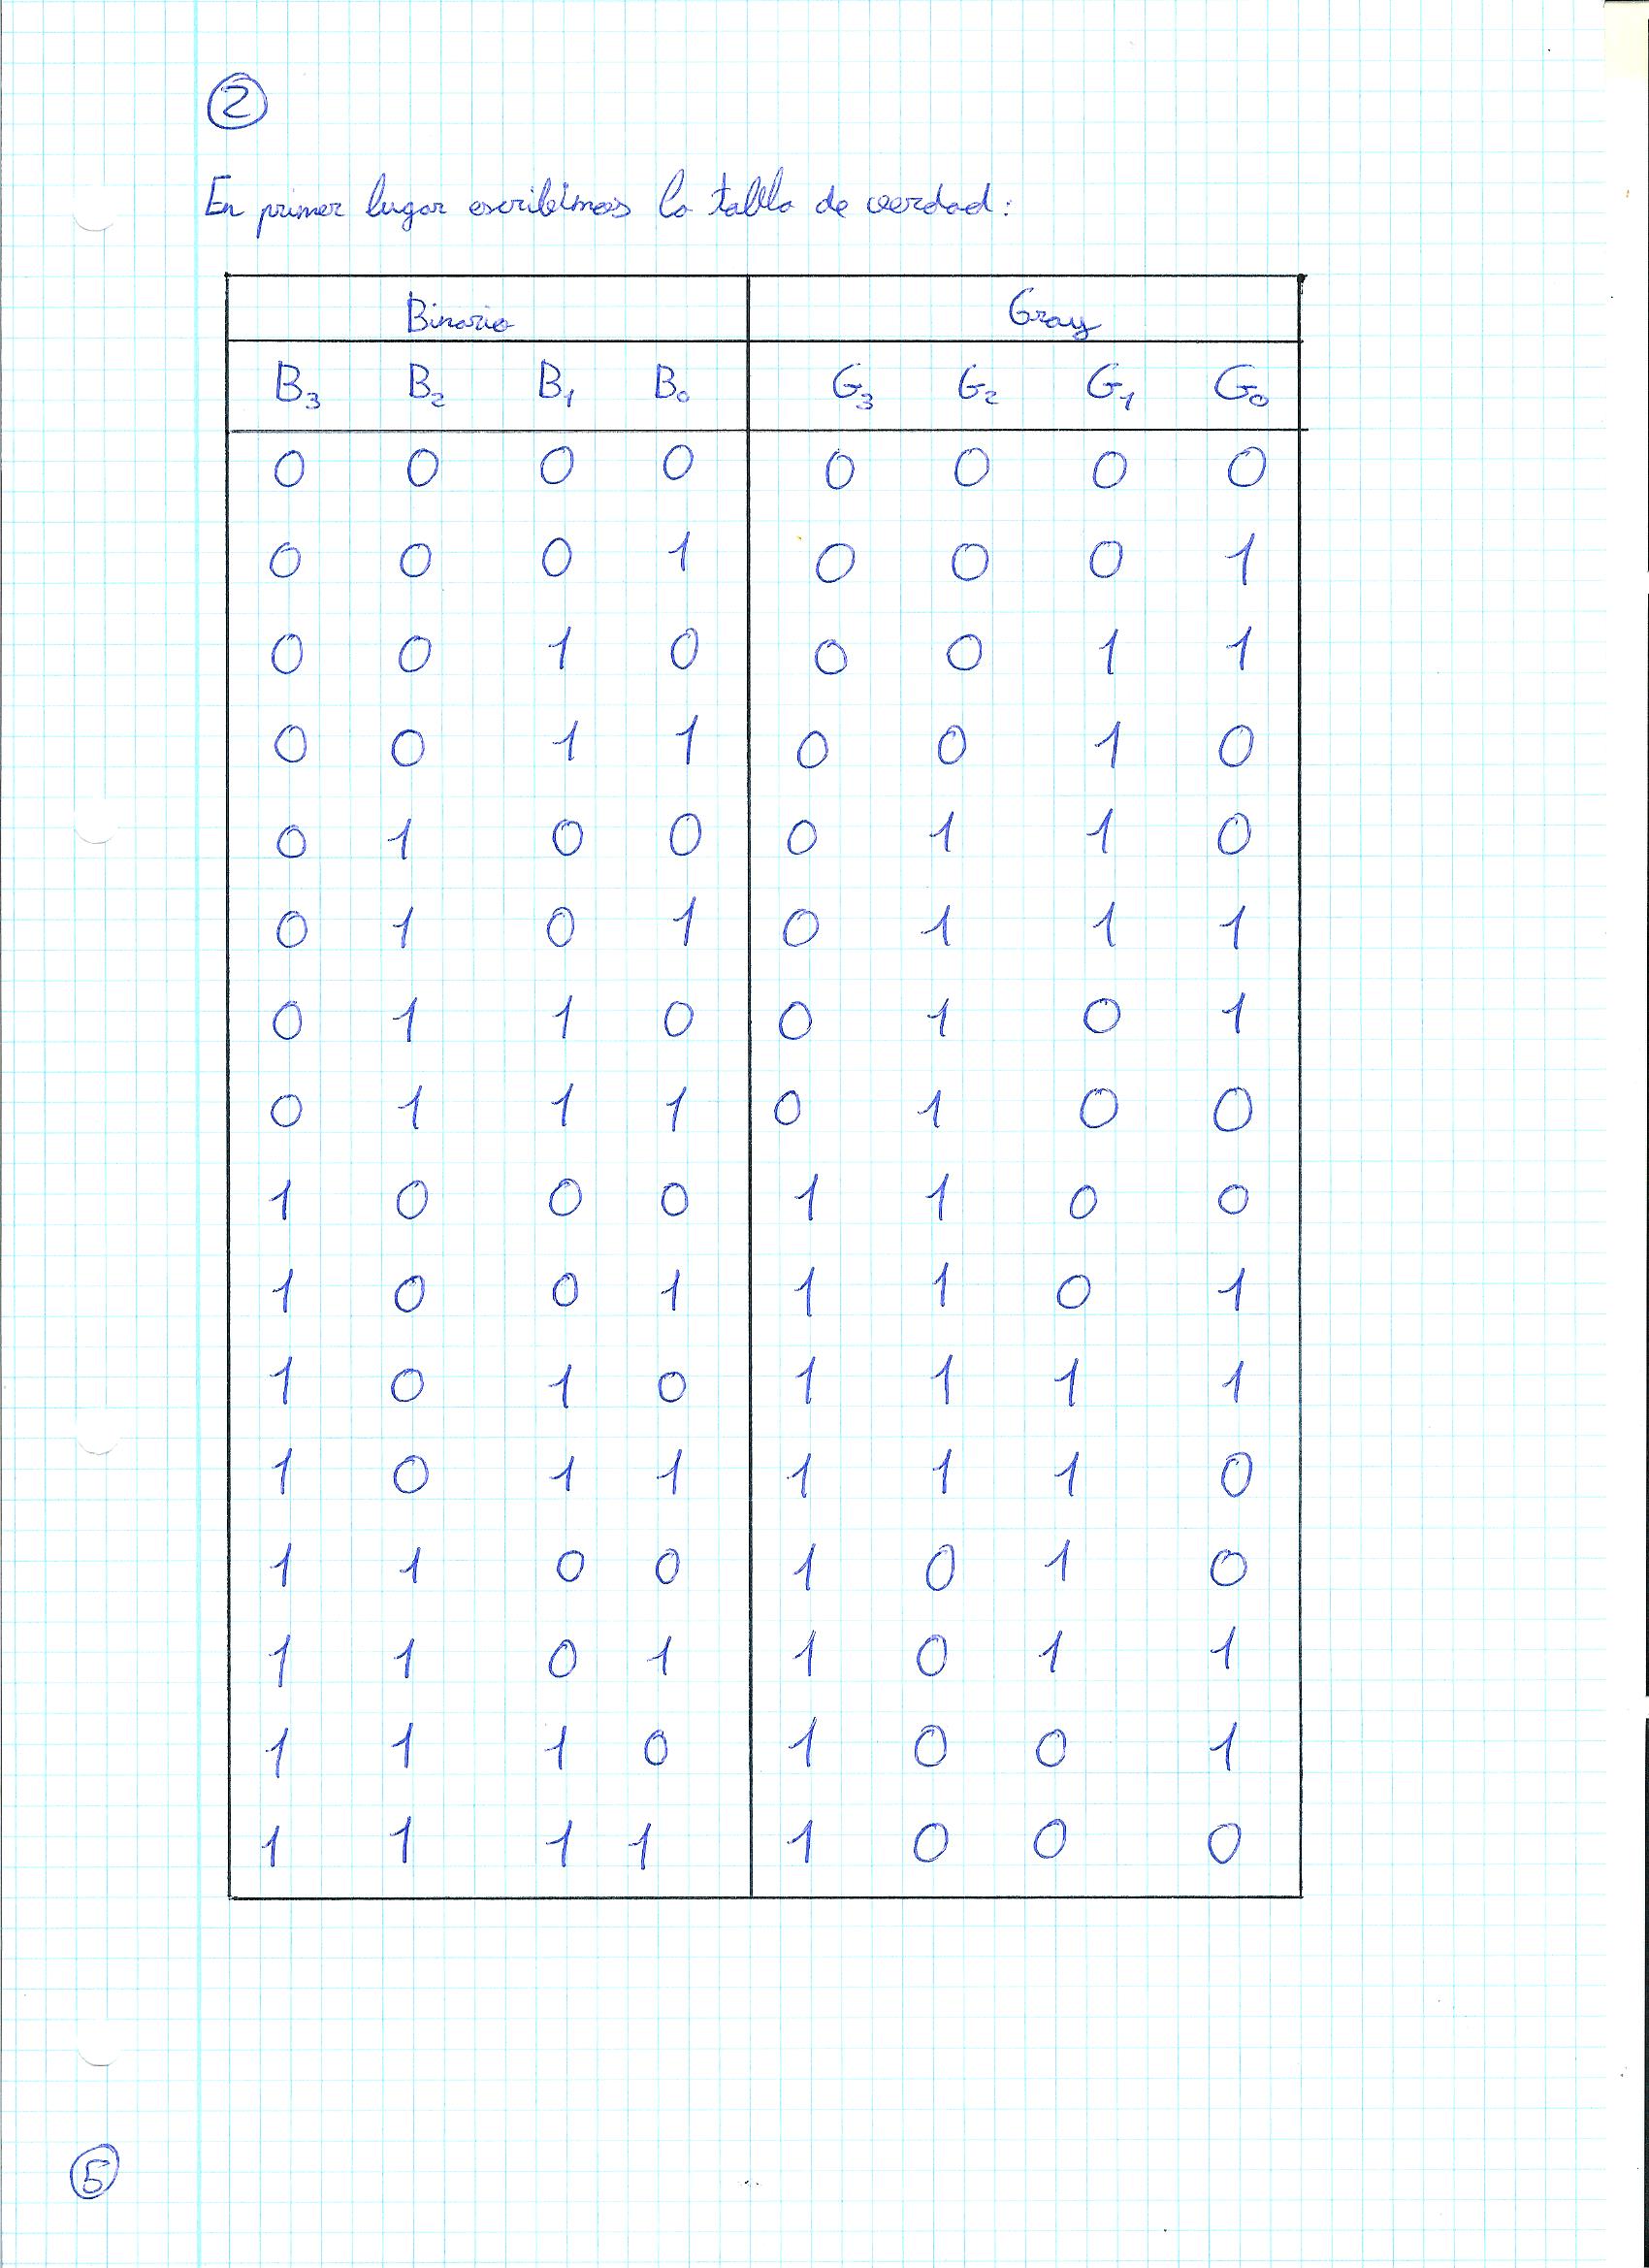 2
En primer lugar escribimos la tabla de verdad:
Binario Gray
B₃ B₂ B₁ B₀ G₃ G₂ G₁ G₀
0 0 0 0 0 0 0 0
0 0 0 1 0 0 0 1
0 0 1 0 0 0 1 1
0 0 1 1 0 0 1 0
0 1 0 0 0 1 1 0
0 1 0 1 0 1 1 1
0 1 1 0 0 1 0 1
0 1 1 1 0 1 0 0
1 0 0 0 1 1 0 0
1 0 0 1 1 1 0 1
1 0 1 0 1 1 1 1
1 0 1 1 1 1 1 0
1 1 0 0 1 0 1 0
1 1 0 1 1 0 1 1
1 1 1 0 1 0 0 1
1 1 1 1 1 0 0 0
5